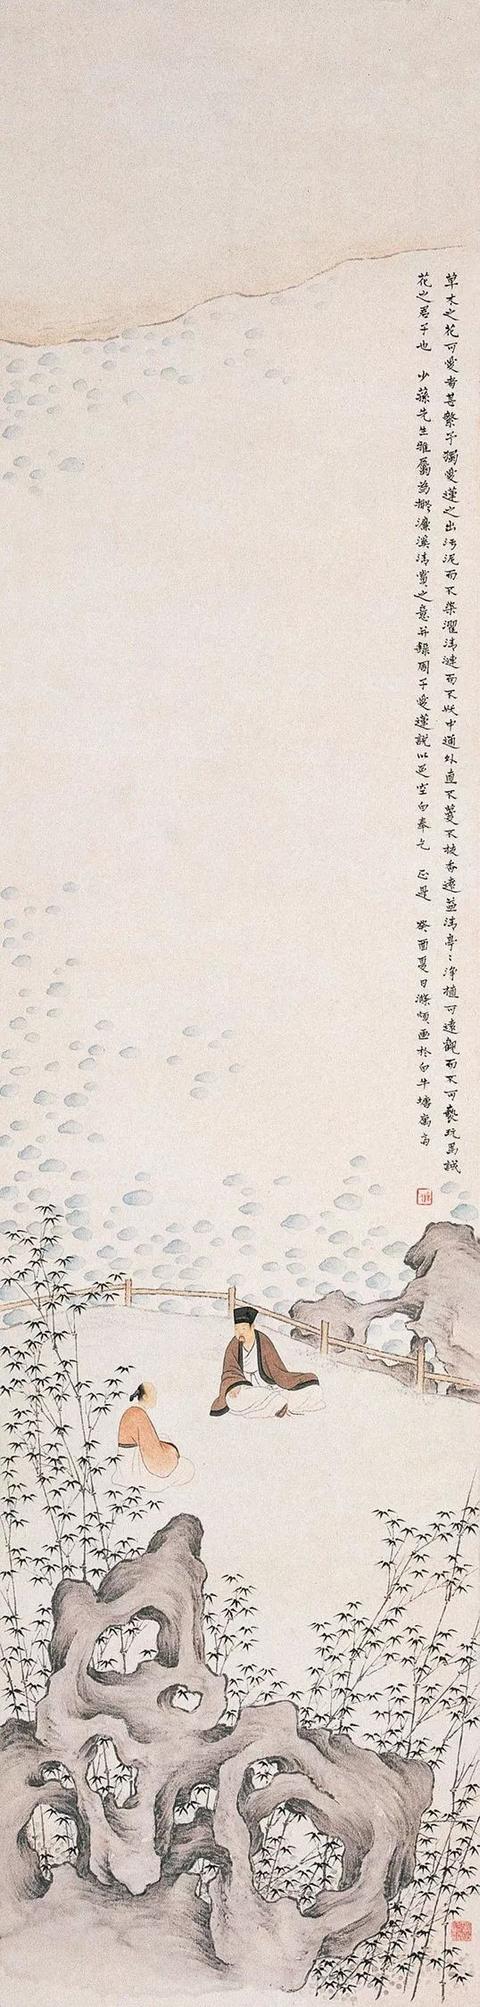 草木之花可愛者甚繁予獨愛蓮之出污泥而不染濯清漣而不妖中通外直不蔓不枝香遠益清亭〻淨植可遠觀而不可褻玩焉誠
花之君子也 少蓀先生雅屬為擬濂溪清賞之意并錄周子愛蓮說以足空白奉乞 正是 癸酉夏日滌煩畫於白牛塘寓齋